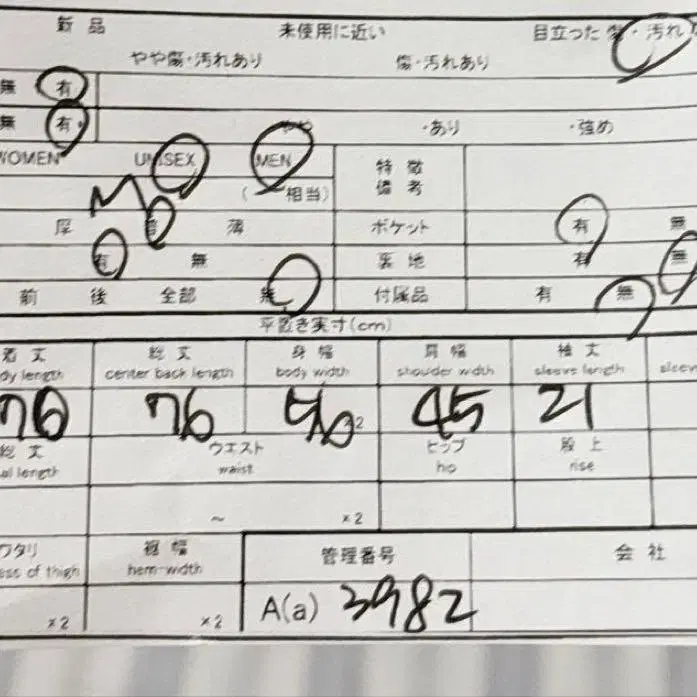 新品 未使用に近い 目立った傷・汚れな
やや傷・汚れあり 傷・汚れあり
無 有
無 有・ ・あり ・強め
WOMEN UNISEX MEN 特徴
M (相当) 備考
厚 普 薄 ポケット 有 無
有 無 裏地 有 無
前 後 全部 無 付属品 有 無
平置き実寸(cm)
着丈 総丈 身幅 肩幅 袖丈
dy length center back length body width shouder width sleeve length sleev
76 76 56 ×2 45 21
総丈 ウエスト ヒップ 股上
al length waist hip rise
~ ×2
ワタリ 裾幅 管理番号 会社
ess of thigh hem-width
×2 ×2 A(a) 3982